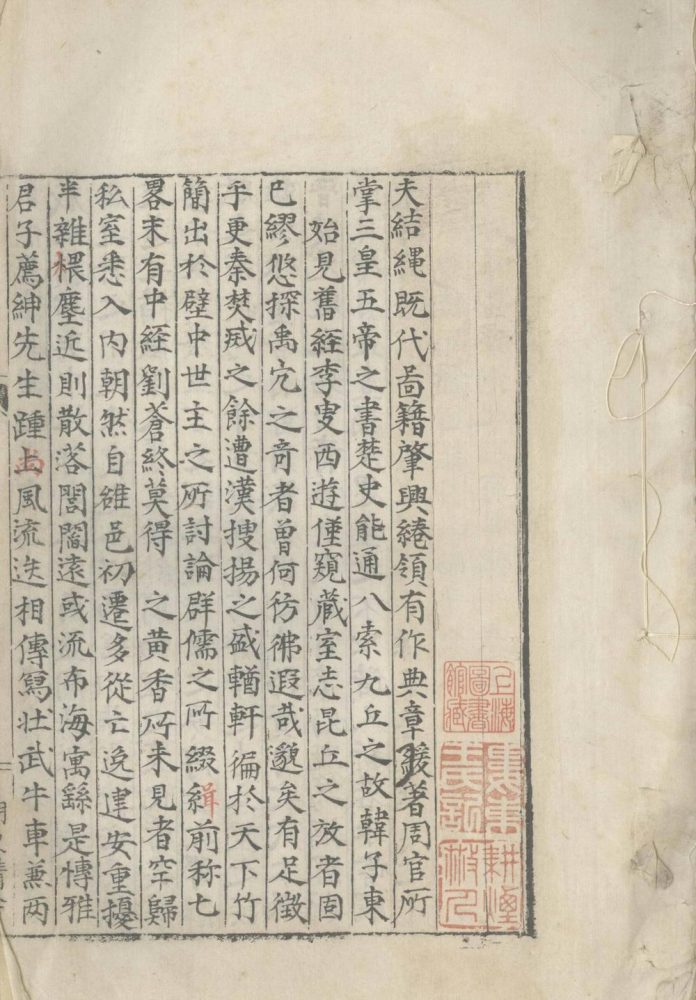 夫結繩既代啚籍肇興綣領有作典章鍰著周官所
掌三皇五帝之書楚史能通八索九丘之故韓子東
始見舊經李叟西遊僅窺藏室志昆丘之放者固
已繆悠探禹穴之奇者曾何彷彿遐哉邈矣有足徵
乎更秦焚烕之餘遭漢搜揚之盛輶軒徧於天下竹
簡出於壁中世主之所討論群儒之所綴緝前称七
畧末有中經劉蒼終莫得之黃香所未見者罕歸
私室悉入内朝然自雒邑初遷多從亡逸建安重擾
半雜榠塵近則散落閭閻遠或流布海寓繇是愽雅
君子薦紳先生踵上風流迭相傳寫壮武牛車兼兩
上海圖書館藏